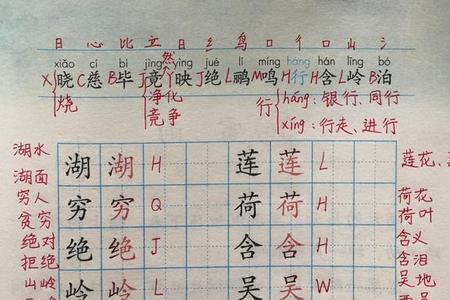 日 心 比 立 日 纟 鸟 口 彳 口 山 氵
xiǎo cí bì jìng yìng jué lí míng háng hán lǐng bó
然
X晓C慈B毕J竟Y映J绝L鹂M鸣H行H含L岭B泊
烧 净化 行 háng：银行、同行
竞争 xíng：行走、进行
湖水 湖 湖 H 莲 莲 L 莲花、
湖面
穷人 穷 穷 Q 荷 荷 H 荷花
贫穷 荷叶
绝对 绝 绝 J 含 含 H 含义
拒绝 含泪
山岭 岭 岭 L 吴 吴 W 吴地